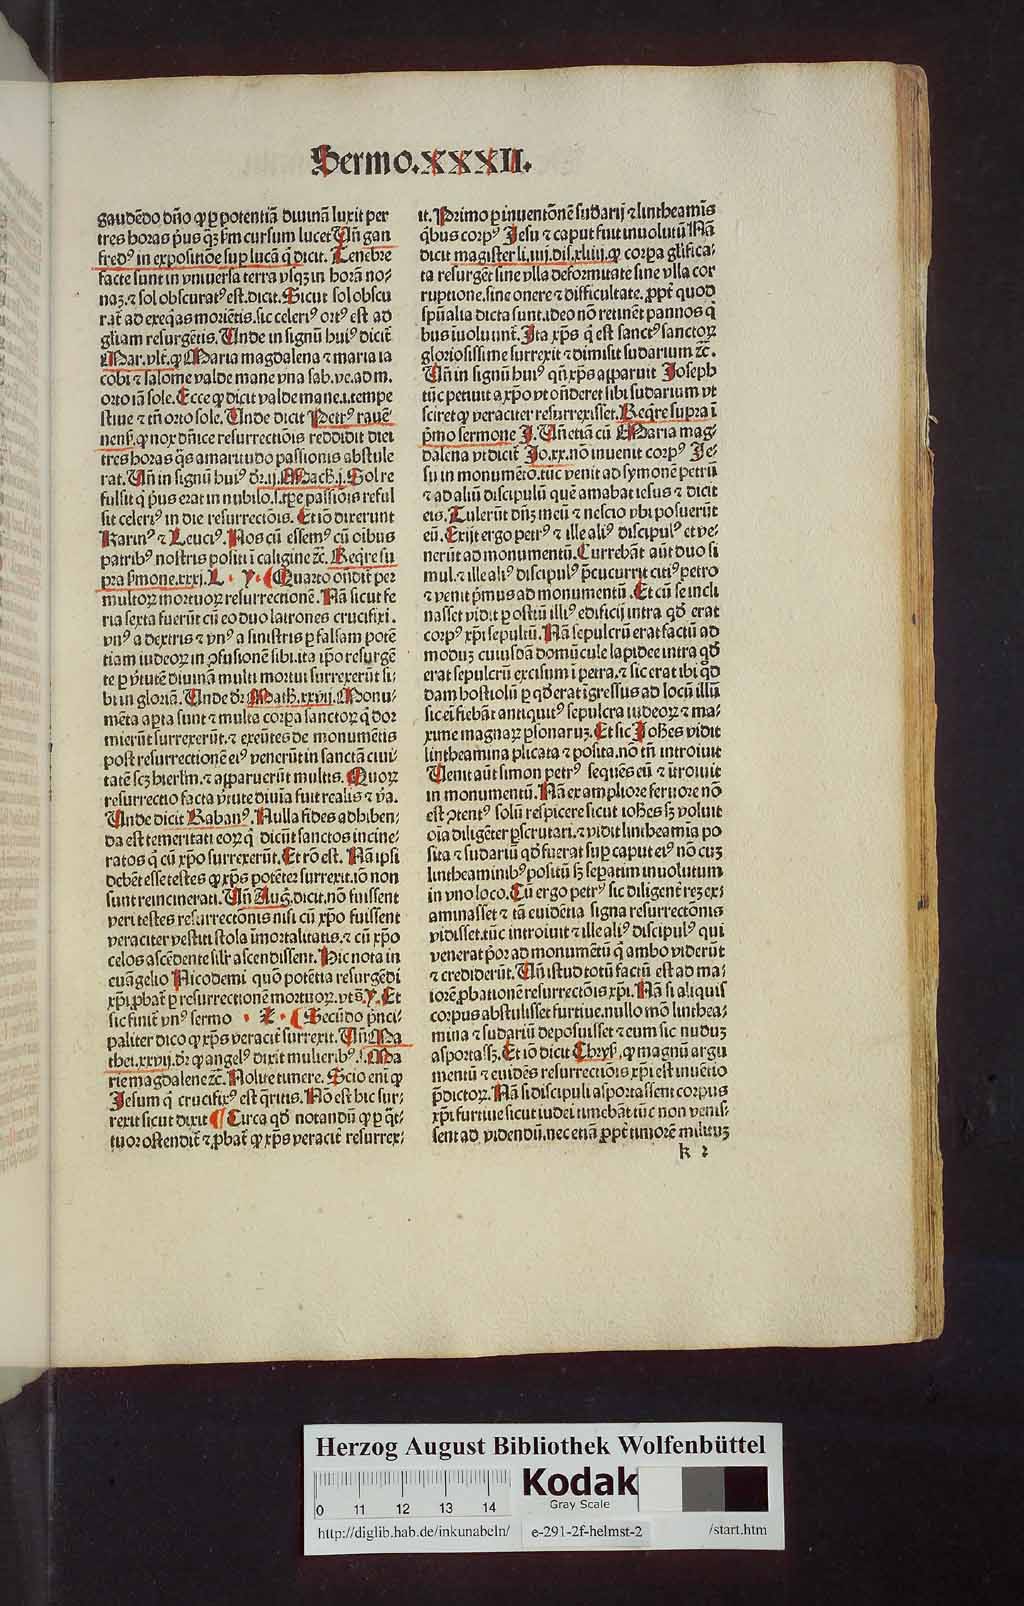 Sermo.XXXII.
gaudēdo dño ꝙ ꝑ potentiā diuinā luxit per
tres horas p̄us q̄ȝ ẜm cursum lucet Uñ gan
fredꝰ in expositiōe suꝑ lucā q̄ dicit. Tenebre
facte sunt in vniuersa terra vsqȝ in horā no⸗
naȝ. ⁊ sol obscuratꝰ est. dicit. Sicut sol obscu
rat̄ ad exeq̄as moriētis. sic celeriꝰ ortꝰ est ad
gl̄iam resurgētis. Unde in signū huiꝰ dicit̄
Mar. vlt̄. ꝙ Maria magdalena ⁊ maria ia
cobi ⁊ salome valde mane vna sab. ve. ad m.
orto iā sole. Ecce ꝙ dicit valde mane .i. tempe
stiue ⁊ tñ orto sole. Unde dicit Petrꝰ rauē
nenẜ. ꝙ nox dñice resurrectiōis reddidit diei
tres horas q̄s amaritudo passionis abstule
rat. Uñ in signū huiꝰ dr̄ .ij. Mach. j. Sol re
fulsit q̄ p̄us erat in nubilo .s. tꝑe passiōis reful
sit celeriꝰ in die resurrectiōis. Et iō dixerunt
Karinꝰ ⁊ Leuciꝰ. Nos cū essemꝰ cū oībus
patribꝰ nostris positi ī caligine ⁊c̄. Reqͥre su
pra ẜmone .xxxj. L · y · ¶ Quarto ōndit̄ per
multoꝝ mortuoꝝ resurrectionē. Nā sicut fe
ria sexta fuerūt cū eo duo latrones crucifixi.
vnꝰ a dextris ⁊ vnꝰ a sinistris ꝑ falsam potē
tiam iudeoꝝ in ꝯfusionē sibi. ita ip̄o resurgē
te ꝑ v̄tutē diuinā multi mortui surrexerūt si⸗
bi in gloriā. Unde dr̄ Math. xxvij. Monu⸗
mēta aꝑta sunt ⁊ multa corꝑa sanctoꝝ q̄ dor
mierūt surrexerūt. ⁊ exeūtes de monumētis
post resurrectionē eiꝰ venerūt in sanctā ciui⸗
tatē scȝ hierl̄m. ⁊ apparuerūt multis. Quoꝝ
resurrectio facta v̄tute diuīa fuit realis ⁊ v̄a.
Unde dicit Rabanꝰ. Nulla fides adhiben⸗
da est temeritati eoꝝ q̄ dicūt sanctos incine⸗
ratos q̄ cū xp̄o surrexerūt. Et rō est. Nā ipsi
debēt esse testes ꝙ xp̄s potēter surrexit. iō non
sunt reincinerati. Uñ Auḡ. dicit. nō fuissent
veri testes resurrectōnis nisi cū xp̄o fuissent
veraciter vestiti stola īmortalitatis. ⁊ cū xp̄o
celos ascēdente sil̄r ascendissent. Hic nota in
euāgelio Nicodemi quō potētia resurgēdi
xp̄i ꝓbat̄ ꝑ resurrectionē mortuoꝝ. vt s̄. y. Et
sic finit̄ vnꝰ sermo · Z · ¶ Secūdo p̄nci⸗
paliter dico ꝙ xp̄s veracit̄ surrexit. Uñ Ma
thei. xxvij. dr̄ ꝙ angelꝰ dixit mulieribꝰ .s. Ma
rie magdalene ⁊c̄. Nolite timere. Scio enī ꝙ
Jesum q̄ crucifixꝰ est q̄ritis. Nō est hic sur⸗
rexit sicut dixit ¶ Circa qđ notandū ꝙ ꝑ q̄t⸗
tuor ostendit̄ ⁊ ꝓbat̄ ꝙ xp̄s veracit̄ surrex⸗
it. Primo ꝑ inuentōnē sudarij ⁊ lintheamīs
q̄bus corpꝰ Jesu ⁊ caput fuit inuolutū Nā
dicit magister li. iiij. dis. xliiij. ꝙ corꝑa gl̄ifica⸗
ta resurgēt sine vlla deformitate sine vlla cor
ruptione. sine onere ⁊ difficultate. ꝓpt̄ quod
sp̄ualia dicta sunt. ideo nō retinēt pannos q̄
bus īuoluunt̄. Ita xp̄s q̄ est sanctꝰ sanctoꝝ
gloriosissime surrexit ⁊ dimisit sudarium ⁊c̄.
Uñ in signū huiꝰ qñ xp̄s apparuit Joseph
tūc petiuit a xp̄o vt ōnderet sibi sudarium vt
sciret ꝙ veraciter resurrexisset. Reqͥre supra ī
p̄mo sermone J. Uñ etiā cū Maria mag⸗
dalena vt dicit̄ Jo. xx. nō inuenit corpꝰ Je⸗
su in monumēto. tūc venit ad symonē petrū
⁊ ad aliū discipulū quē amabat iesus ⁊ dicit
eis. Tulerūt dñȝ meū ⁊ nescio vbi posuerūt
eū. Exijt ergo petrꝰ ⁊ ille aliꝰ discipulꝰ et ve⸗
nerūt ad monumentū. Currebāt aūt duo si
mul. ⁊ ille aliꝰ discipulꝰ p̄cucurrit citiꝰ petro
⁊ venit p̄mus ad monumentū. Et cū se incli
nasset vidit posita illiꝰ edificij intra qđ erat
corpꝰ xp̄i sepultū. Nā sepulcrū erat factū ad
modūȝ cuiusdā domūcule lapidee intra qđ
erat sepulcrū excisum ī petra. ⁊ sic erat ibi qđ
dam hostiolū ꝑ qđ erat īgressus ad locū illū
sic eī fiebāt antiquitꝰ sepulcra iudeoꝝ ⁊ ma⸗
xime magnaꝝ ꝑsonaruȝ. Et sic Joħes vidit
lintheamina plicata ⁊ posita. nō tñ introiuit
Uenit aūt simon petrꝰ sequēs eū ⁊ ītroiuit
in monumentū. Nā ex ampliore feruore nō
est ꝯtentꝰ solū respicere sicut ioħes sȝ voluit
oīa diligēter ꝑscrutari. ⁊ vidit lintheamīa po
sita ⁊ sudariū qđ fuerat suꝑ caput eiꝰ nō cuȝ
lintheaminibꝰ positū sȝ separatim inuolutum
in vno loco. Cū ergo petrꝰ sic diligent̄ reȝ ex⸗
aminasset ⁊ tā euidētia signa resurrectōnis
vidisset. tūc introiuit ⁊ ille aliꝰ discipulꝰ qui
venerat p̄or ad monumētū q̄ ambo viderūt
⁊ crediderūt. Uñ istud totū factū est ad ma⸗
iorē ꝓbationē resurrectōis xp̄i. Nā si aliquis
corpus abstulisset furtiue. nullo mō linthea⸗
mina ⁊ sudariū deposuisset ⁊ eum sic nuduȝ
asportasȝ. Et iō dicit Chryẜ. ꝙ magnū argu
mentū ⁊ euidēs resurrectiōis xp̄i est inuētio
p̄dictoꝝ. Nā si discipuli asportassent corpus
xp̄i furtiue sicut iudei timebāt tūc non venis⸗
sent ad videndū. nec etiā ꝓpt̄ timorē milituȝ
k 2
Herzog August Bibliothek Wolfenbüttel
Kodak
Gray Scale
0 11 12 13 14
http://diglib.hab.de/inkunabeln/ e-291-2f-helmst-2 /start.htm